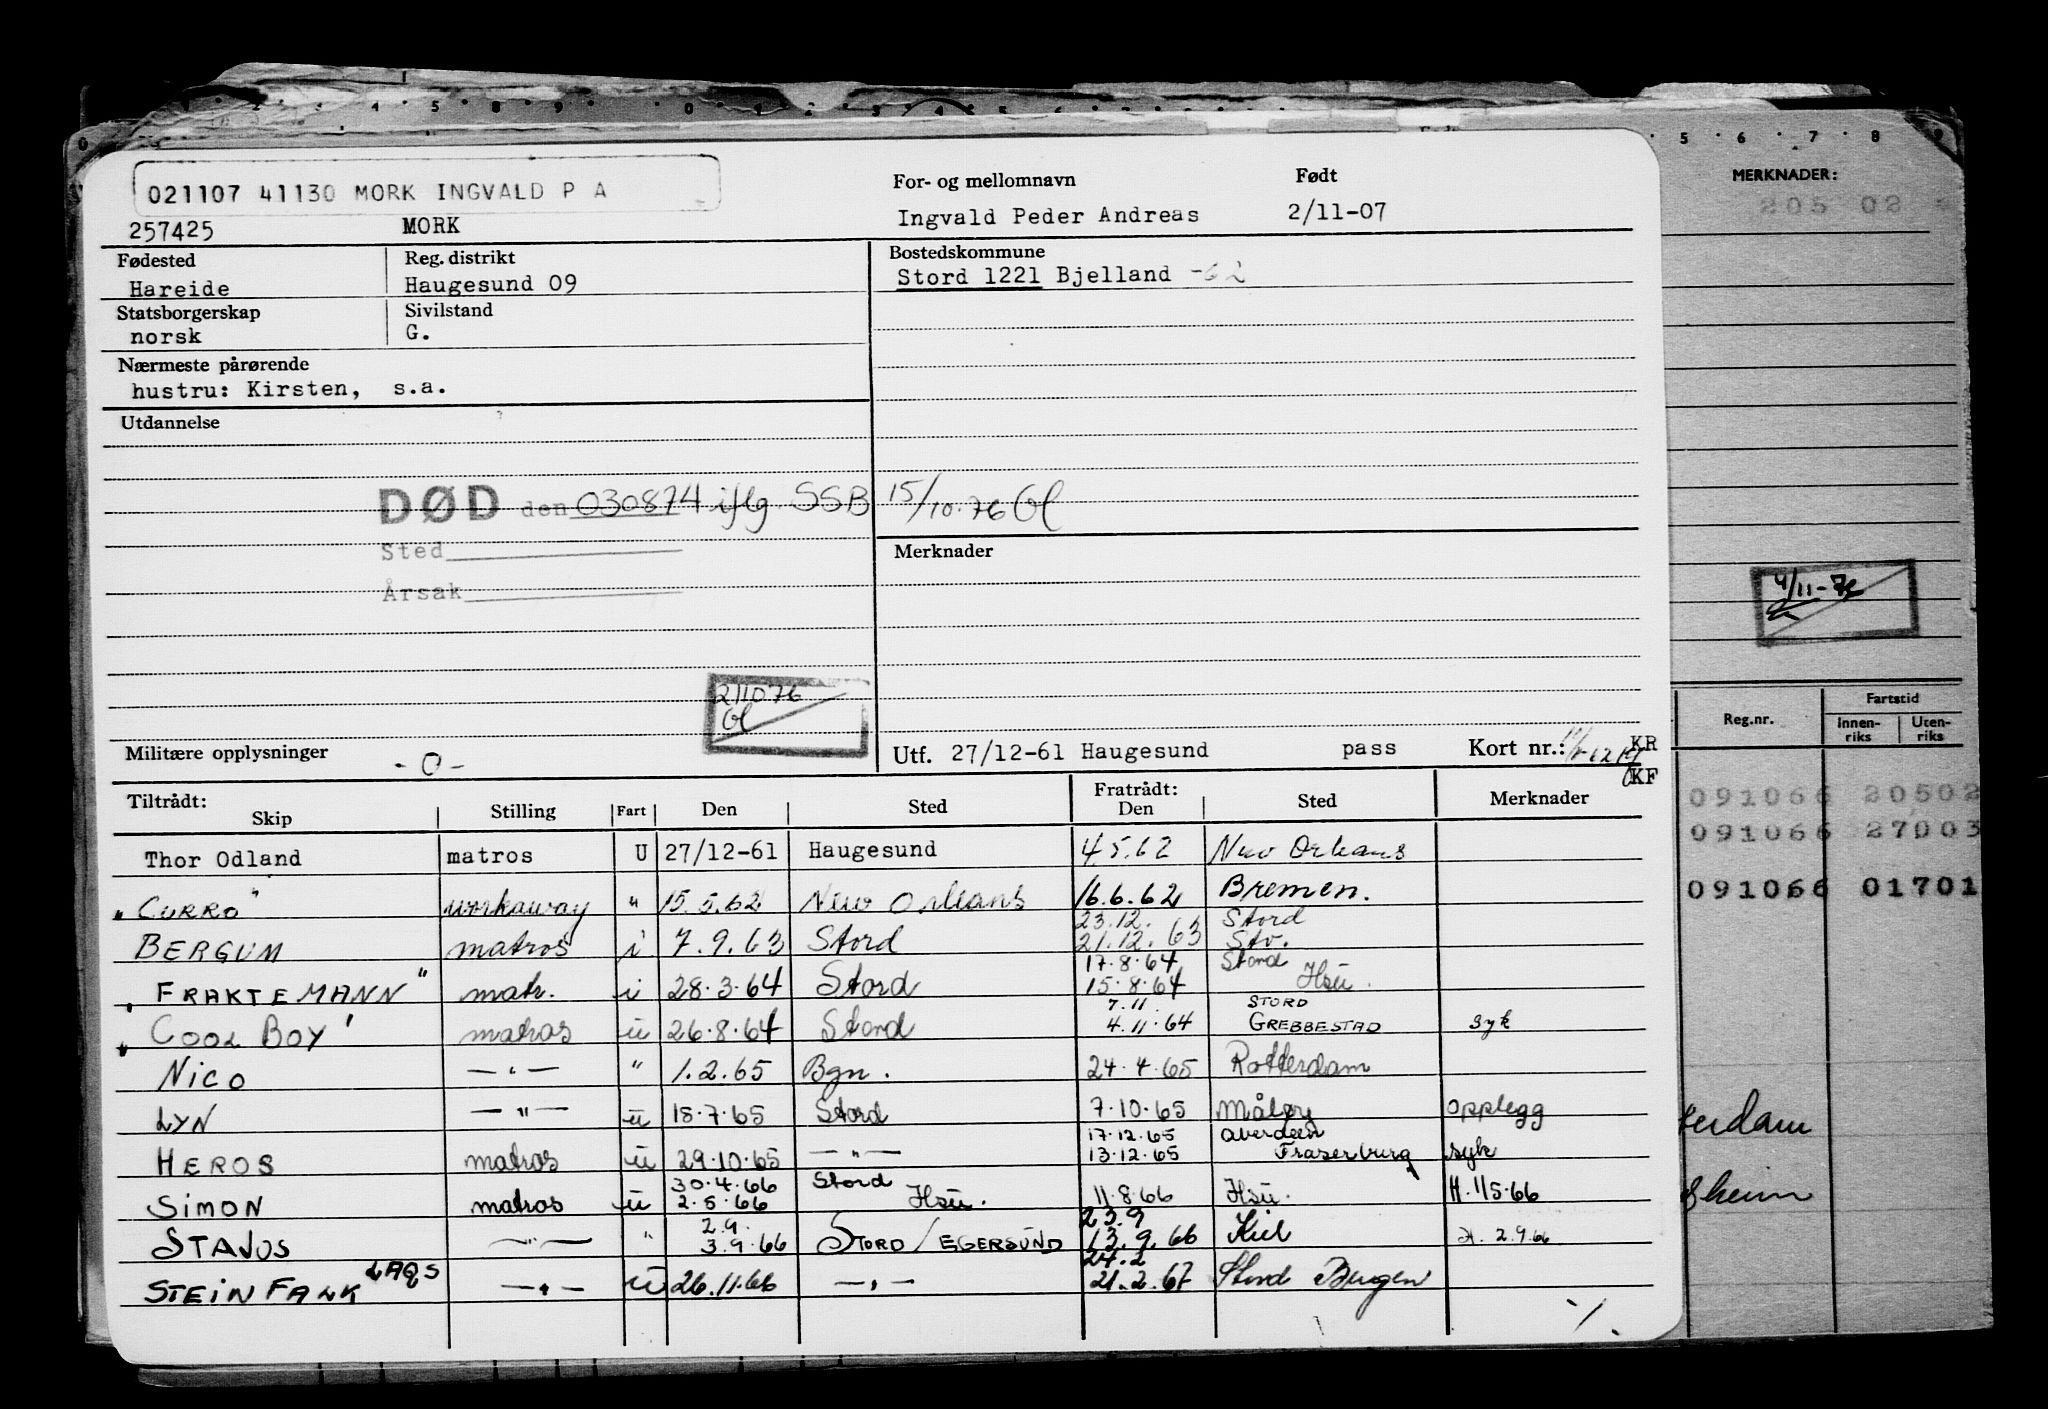 021107 41130 MORK INGVALD P A
257425 MORK
For- og mellomnavn Født
Ingvald Peder Andreas 2/11-07
MERKNADER:
205 02
Fødested Reg. distrikt Bostedskommune
Hareide Haugesund 09 Stord 1221 Bjelland -62
Statsborgerskap Sivilstand
norsk G.
Nærmeste pårørende
hustru: Kirsten, s.a.
Utdannelse
DØD den 030874 iflg. SSB 15/10.76 Gl
Sted
Årsak
Merknader
4/11-76
211076
Gl
Reg.nr. Fartstid
Innen-riks Uten-riks
Militære opplysninger - 0 -
Utf. 27/12-61 Haugesund pass Kort nr.: KR
KF
Tiltrådt: Fratrådt:
Skip Stilling Fart Den Sted Den Sted Merknader
Thor Odland matros U 27/12-61 Haugesund 4.5.62 New Orleans
"CURRO" workaway " 15.5.62 New Orleans 16.6.62 Bremen.
23.12. Stord
BERGUM matros i 7.9.63 Stord 21.12.63 Stv.
17.8.64 Stord
"FRAKTEMANN" matr. i 28.3.64 Stord 15.8.64 Hsu.
7.11 STORD
"COOL BOY" matros u 26.8.64 Stord 4.11.64 GREBBESTAD syk
NICO — " — " 1.2.65 Bgn. 24.4.65 Rotterdam
LYN — " — u 18.7.65 Stord 7.10.65 Måløy opplegg
17.12.65 Aberdeen
HEROS matros u 29.10.65 — " — 13.12.65 Fraserburg syk
30.4.66 Stord
SIMON matros u 2.5.66 Hsu. 11.8.66 Hsu. H. 11.5.66
2.9. 23.9
STAVOS — " — " 3.9.66 STORD / EGERSUND 13.9.66 Kiel H. 2.9.66
24.2
STEIN FALK LAQS — " — u 26.11.66 — " — 21.2.67 Stord Bergen
091066 20502
091066 27003
091066 01701
terdam
sheim